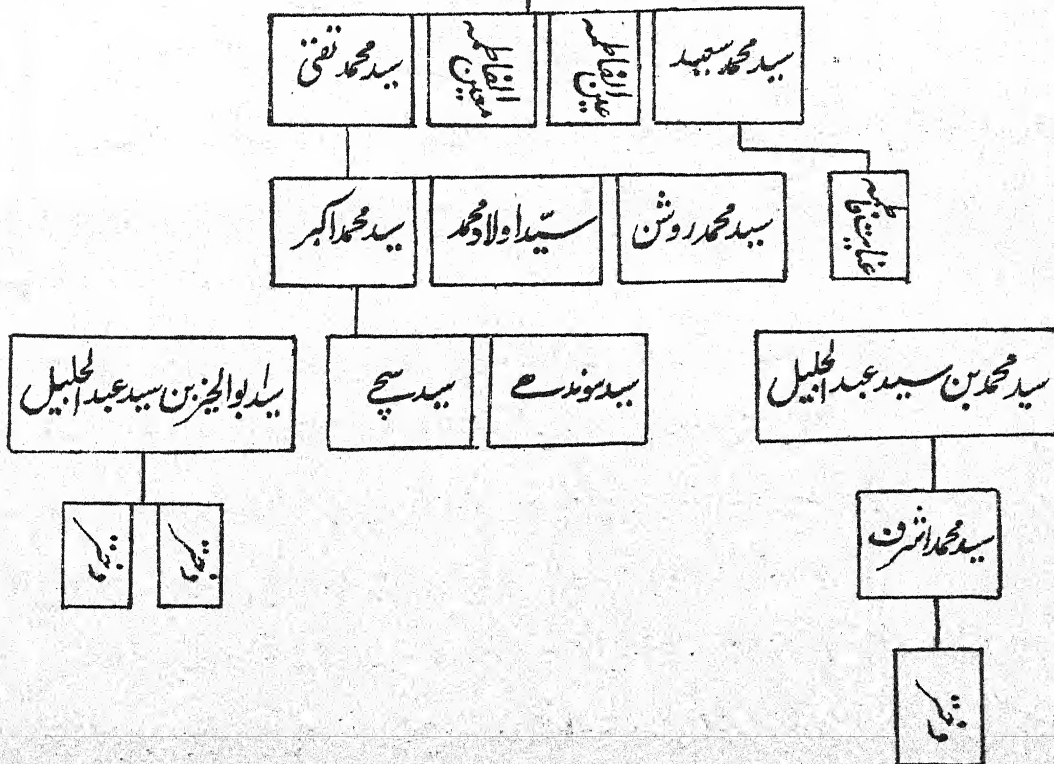 سید محمد سعید
عین الفاطمہ
معین الفاطمہ
سید محمد تقی
عنایت فاطمہ
سید محمد روشن
سیّد اولاد محمد
سید محمد اکبر
سید محمد بن سید عبدالجلیل
سید سوندھے
سید سچے
سید ابوالخیر بن سید عبدالجلیل
سید محمد اشرف
دختر
دختر
دختر